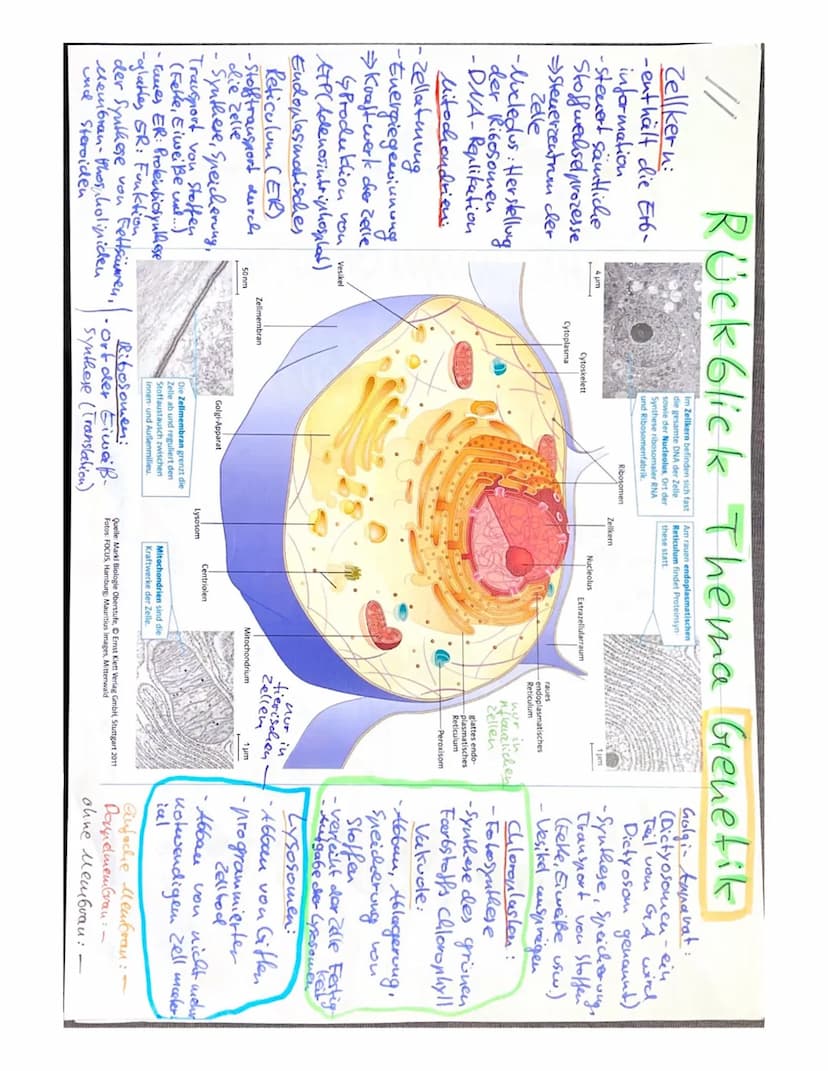 Rückblick Thema Genetik
Zellkern:
- enthält die Erb-
information
- steuert sämtliche
Stoffwechselprozesse
⇒ Steuerzentrum der
Zelle
- Nucleolus: Herstellung
der Ribosomen
- DNA-Replikation
Mitochondrien:
- Zellatmung
- Energiegewinnung
⇒ Kraftwerk der Zelle
↳ Produktion von
ATP (Adenosintriphosphat)
Endoplasmatisches
Reticulum (ER)
- Stofftransport durch
die Zelle
- Synthese, Speicherung,
Transport von Stoffen
(Fette, Eiweiße usw...)
- raues ER: Proteinbiosynthese
- glattes ER: Funktion
der Synthese von Fettsäuren,
Membran-Phospholipiden
und Steroiden
Ribosomen:
- Ort der Eiweiß-
synthese (Translation)
4 µm
Im Zellkern befinden sich fast
die gesamte DNA der Zelle
sowie der Nucleolus, Ort der
Synthese ribosomaler RNA
und Ribosomenfabrik.
Am rauen endoplasmatischen
Reticulum findet Proteinsyn-
these statt.
1 µm
Cytoplasma
Cytoskelett
Ribosomen
Zellkern
Nucleolus
Extrazellularraum
raues
endoplasmatisches
Reticulum
glattes endo-
plasmatisches
Reticulum
Peroxisom
Vesikel
Zellmembran
Golgi-Apparat
Lysosom
Centriolen
Mitochondrium
50 nm
Die Zellmembran grenzt die
Zelle ab und reguliert den
Stoffaustausch zwischen
Innen- und Außenmilieu.
Mitochondrien sind die
Kraftwerke der Zelle.
1 µm
Quelle: Markl Biologie Oberstufe, © Ernst Klett Verlag GmbH, Stuttgart 2011
Fotos: FOCUS, Hamburg; Mauritius Images, Mittenwald
Golgi-Apparat:
(Dictyosomen - ein
Teil vom GA wird
Dictyosom genannt)
- Synthese, Speicherung,
Transport von Stoffen
(Fette, Eiweiße usw.)
- Vesikel
nur in
pflanzlichen
Zellen
Chloroplasten:
- Fotosynthese
- Synthese des grünen
Farbstoffs Chlorophyll
Vakuole:
- Abbau, Ablagerung,
Speicherung von
Stoffen
- verleiht der Zelle Festig-
keit
- Aufgabe der Lysosomen
nur in
tierischen
Zellen
Lysosomen:
- Abbau von Giften
- programmierter
Zelltod
- Abbau von nicht mehr
notwendigen Zellmater-
ial
Einfache Membran: –
Doppelmembran: –
ohne Membran: –